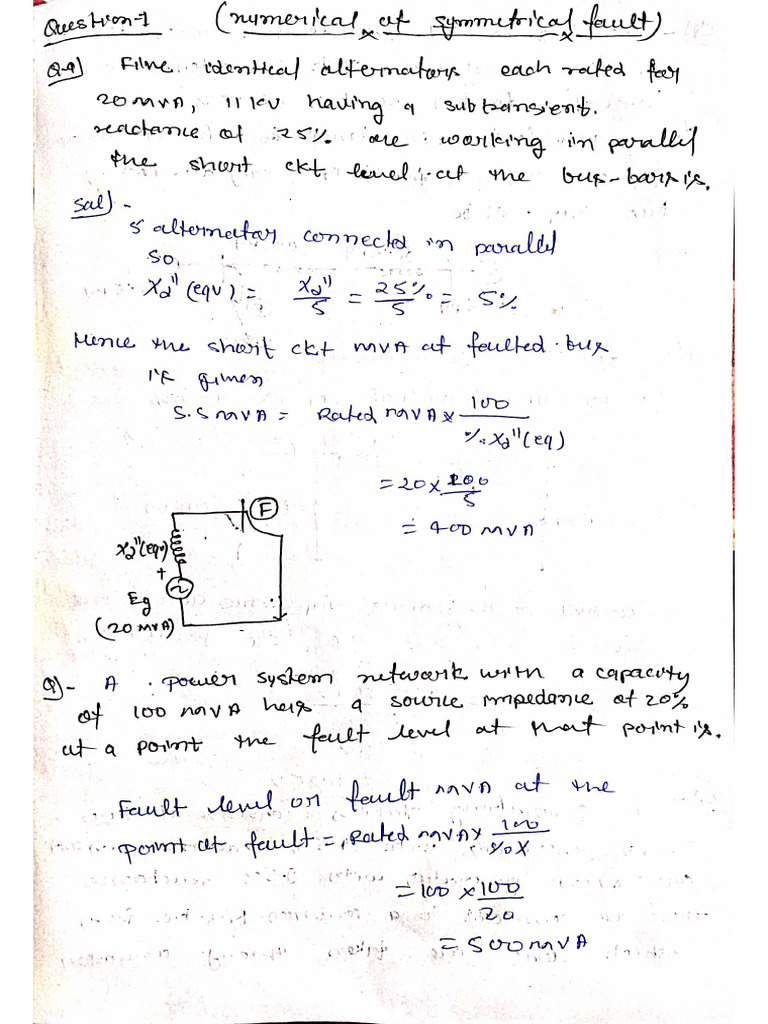 Question-1 (numerical of symmetrical fault)
Q-9) Five identical alternators each rated for
20 MVA, 11 kV having a subtransient.
reactance of 25% are working in parallel
the short ckt level at the bus-bars is.
Sol) -
5 alternator connected in parallel
So,
Xd"(eqv) = Xd"/5 = 25%/5 = 5%
Hence the short ckt MVA at faulted bus
is given
S.S MVA = Rated MVA × 100/%Xd"(eq)
= 20 × 100/5
= 400 MVA
F
Xd"(eqv)
+
Eg
(20 MVA)
Q)- A power system network with a capacity
of 100 MVA has a source impedance of 20%
at a point the fault level at that point is.
Fault level or fault MVA at the
point of fault = Rated MVA × 100/%X
= 100 × 100/20
= 500 MVA